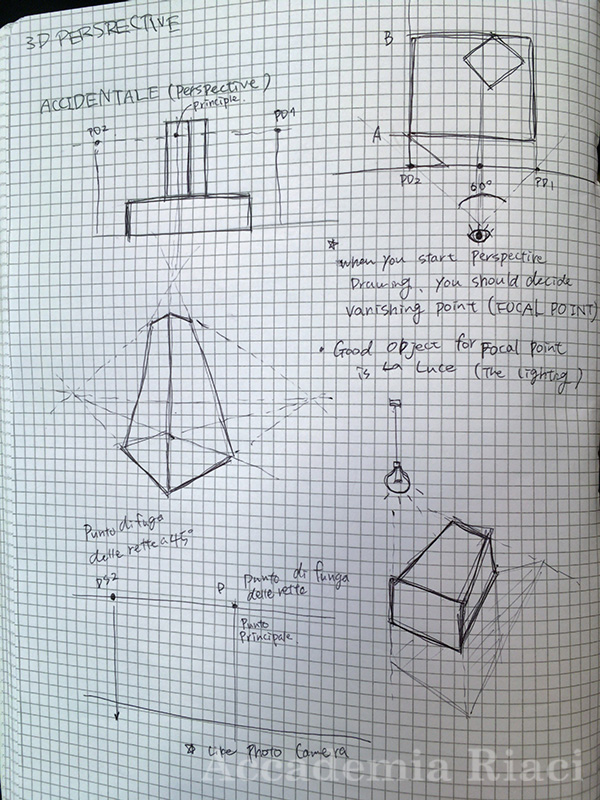 3D PERSRECTIVE
ACCIDENTALE (Perspective)
principle.
PD2
PD1
B
A
PD2
60°
PD1
☆ when you start Perspective
Drawing, you should decide
vanishing point (FOCAL POINT)
• Good object for Focal point
is La Luce (The Lighting)
Punto di fuga
delle rette a 45°
DS2
P
Punto di funga
delle rette
Punto
Principale.
☆ Like Photo Camera
Accademia Riaci